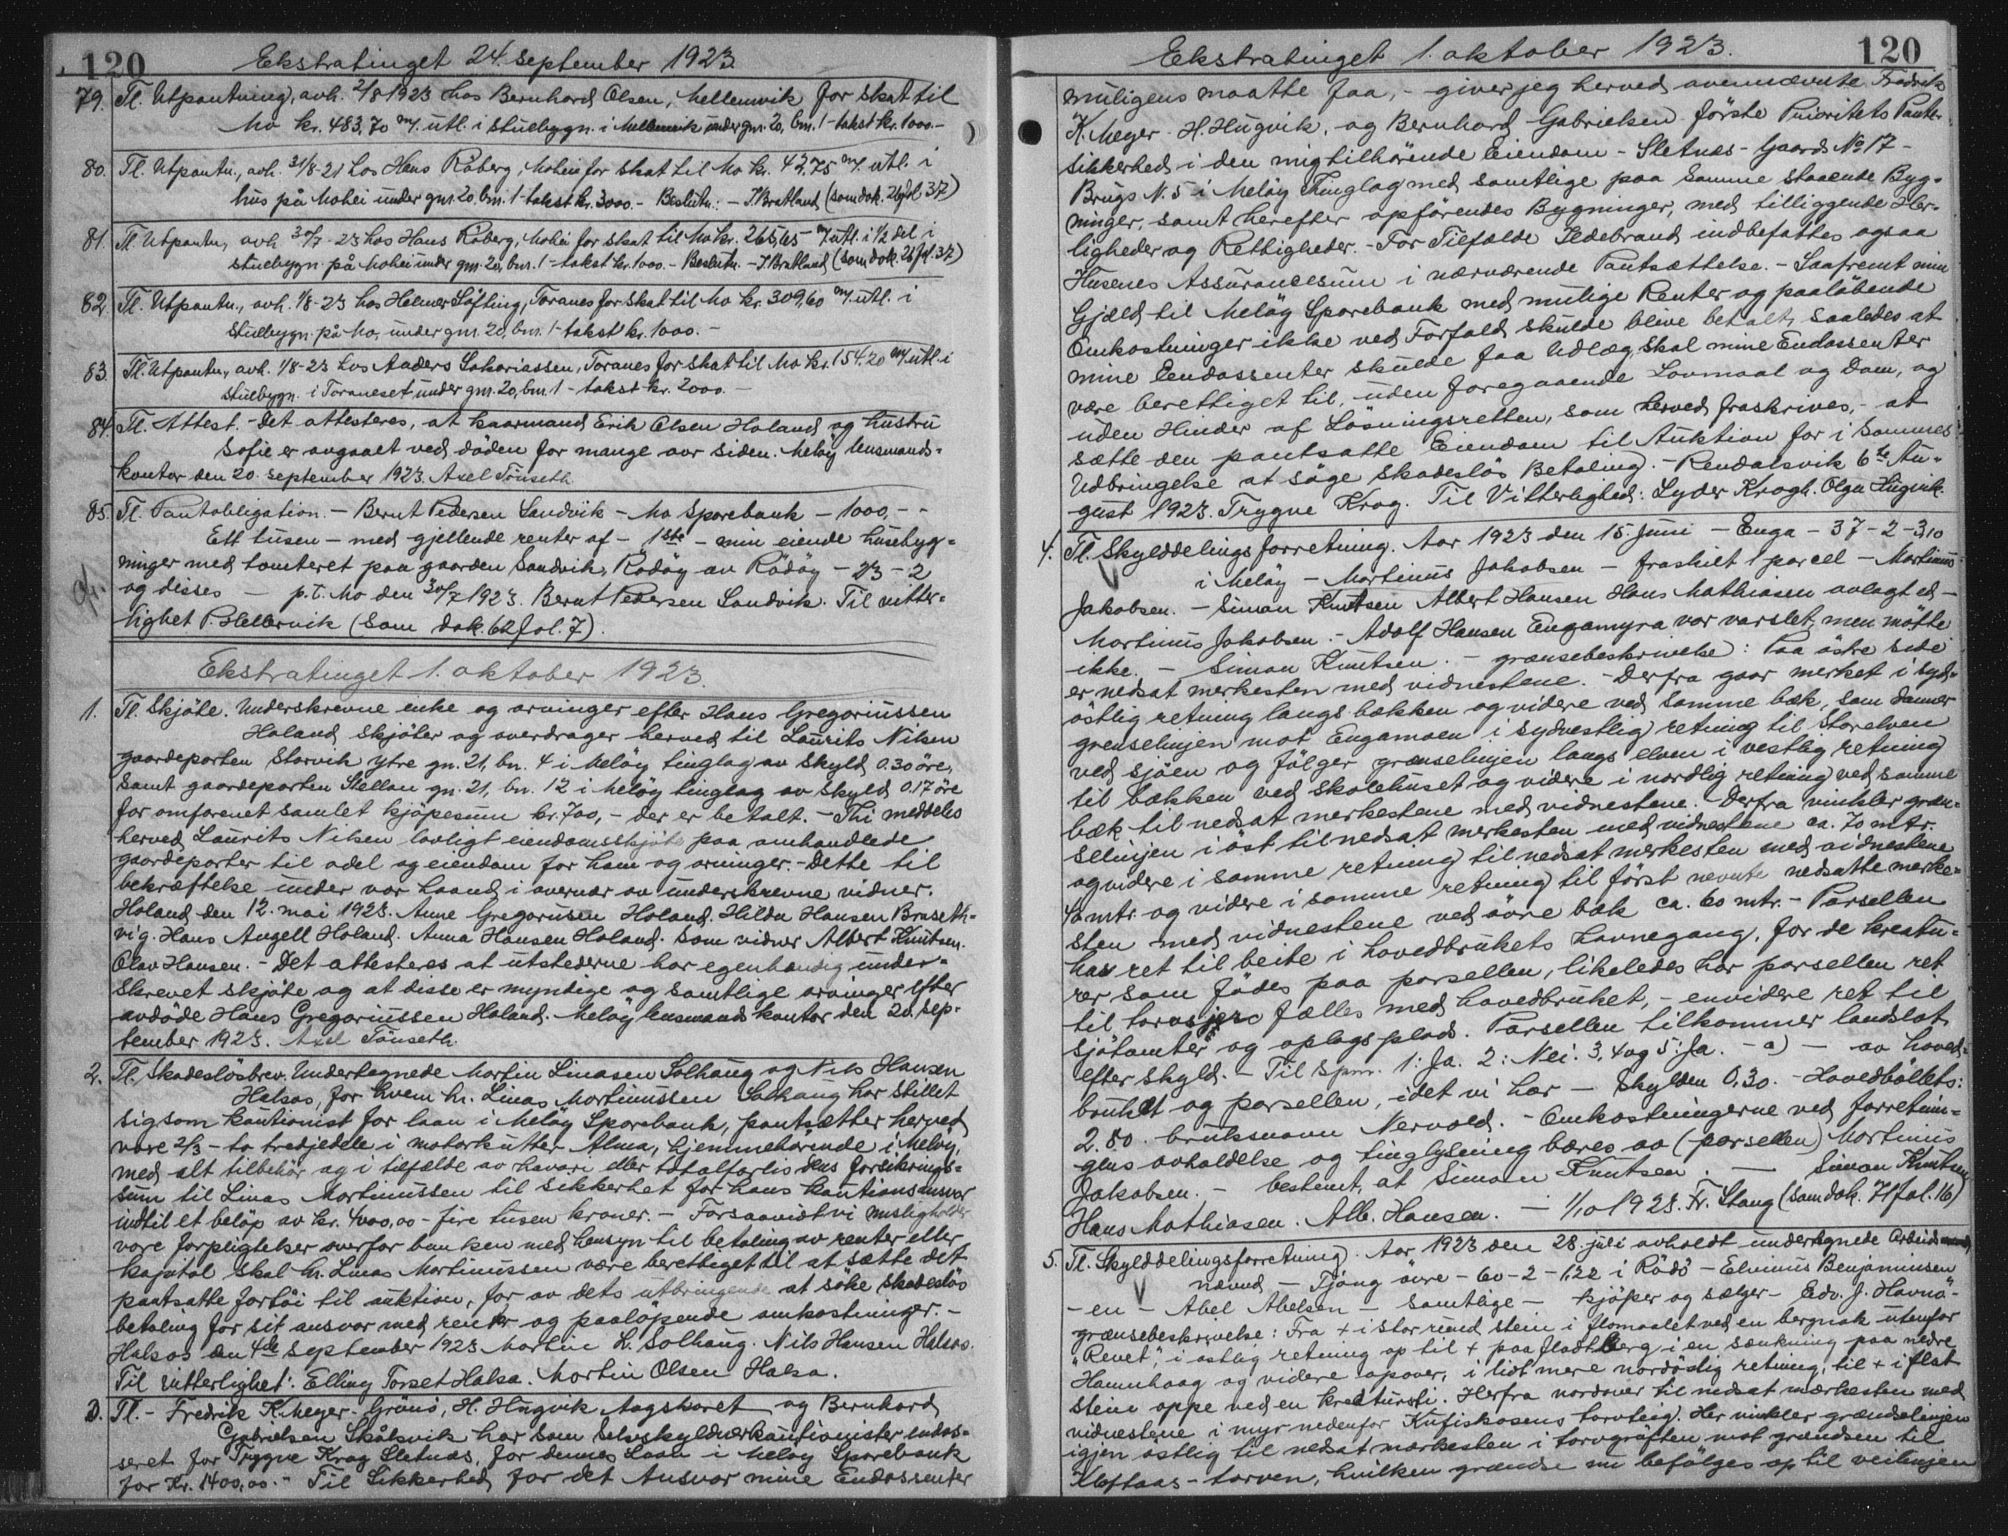 120 Ekstratinget 24. september 1923
79. Tl. Utpantning, avh. 2/8 1923 hos Bernhard Olsen, Mellemvik for skat til
Mo kr. 483,70 m/. utl. i stuebygn. i Mellemvik under gnr. 20, bnr. 1 - takst kr. 1000.-
80. Tl. Utpantn., avh. 31/8-21 hos Hans Råberg, Mohei for skat til Mo kr. 42,75 m/. utl. i
hus på Mohei under gnr. 20, bnr. 1 - takst kr. 3000.- Beslutn.: - J. Bratland (som dok. 26 fol. 37)
81. Tl. Utpantn., avh. 30/7-23 hos Hans Råberg, Mohei for skat til Mo kr. 265,65 m/ utl. i 1/2 del i
stuebygn. på Mohei under gnr. 20, bnr. 1 - takst kr. 1000 - Beslutn. - J. Bratland (som dok. 26 fol. 37)
82. Tl. Utpantn., avh. 1/8-23 hos Helmer Söfting, Toranes for skat til Mo kr. 309,60 m/. utl. i
stuebygn. på Mo, under gnr. 20, bnr. 1 - takst kr. 1000. -
83. Tl. Utpantn., avh. 1/8-23 hos Anders Sakariassen, Toranes for skat til Mo kr. 154.20 m/ utl. i
stuebygn. i Toraneset under gnr. 20, bnr. 1 - takst kr. 2000. -
84. Tl. Attest. - Det attesteres, at kaarmand Erik Olsen Holand og hustru
Sofie er avgaaet ved döden for mange aar siden. Melöy lensmands-
kontor den 20. september 1923. Axel Tönseth.
85. Tl. Pantobligation. - Bernt Pedersen Sandvik - Mo Sparebank - 1000, - -
Ett tusen - med gjellende renter af - 1ste - min eiende husebyg-
ninger med tomteret paa gaarden Sandvik, Rödöy av Rödöy - 23 - 2
og disses - p.t. Mo den 30/7 1923. Bernt Pedersen Sandvik. Til vitter-
lighet P. Hellervik (som dok. 62 fol. 7).
Ekstratinget 1. oktober 1923.
1. Tl. Skjöte. Underskrevne enke og arvinger efter Hans Gregoriussen
Holand skjöter og overdrager herved til Laurits Nilsen
gaardeparten Storvik ytre gn. 21, bn. 4 i Melöy tinglag av skyld 0.30 öre,
samt gaardeparten Stellan gn. 21, bn. 12 i Melöy tinglag av skyld 0.17 öre
for omforenet samlet kjöpesum kr. 700, - der er betalt. - Thi meddeles
herved Laurits Nilsen lovligt eiendomsskjöte paa omhandlede
gaardeparter til odel og eiendom for ham og arvinger. - Dette til
bekræftelse under vor haand i overvær av underskrevne vidner.
Holand den 12. mai 1923. Anne Gregoriusen Holand. Hilda Hansen Braseth-
vig. Hans Angell Holand. Anna Hansen Holand. Som vidner Albert Knutsen.
Olav Hansen. - Det attesteres at utstederne har egenhændig under-
skrevet skjöte og at disse er myndige og samtlige arvinger efter
avdöde Hans Gregoriussen Holand. Melöy lensmandskontor den 20. sep-
tember 1923. Axel Tönseth.
2. Tl. Skadeslösbrev. Undertegnede Martin Linasen Solhaug og Nils Hansen
Halsos, for hvem hr. Linas Martinussen Solhaug har stillet
sig som kautionist for laan i Melöy Sparebank, pantsætter herved
vore 2/3 - to tredjedele i motorkutter Alma, hjemmehörende i Melöy,
med alt tilbehör og i tilfælde av havari eller totalforlis dens forsikrings-
sum til Linas Martinussen til sikkerhet for hans kautionsansvar
indtil et belöp av kr. 4000,00 - fire tusen kroner. - Forsaavidt vi misligholder
vore forpligtelser overfor banken med hensyn til betaling av renter eller
kapital skal hr. Linas Martinussen være berettiget til at sætte det
pantsatte fartöi til auktion, for av dets utbringende at söke skadeslös
betaling for sit ansvar med renter og paalöpende omkostninger. -
Halsos den 4de september 1923 Martin L. Solhaug. Nils Hansen Halsos.
Til vitterlighet: Elling Torset Halsa. Martin Olsen Halsa.
3. Tl. - Fredrik K. Meyer - Grönö, H. Hugvik Aagskaret og Bernhard
Gabrielsen Skålsvik har som Selvskyldnerkautionister endos-
seret for Trygve Krog Sletnæs, for dennes Laan i Melöy Sparebank
for Kr. 1400,00.- Til Sikkerhed for det Ansvar mine Endossenter
Ekstratinget 1. oktober 1923. 120
muligens maatte faa, - giver jeg herved ovennævnte Fredrik
K. Meyer - H. Hugvik, og Bernhard Gabrielsen förste Prioritets Pante-
sikkerhed i den mig tilhörende Eiendom - Sletnæs - Gaards No 17 -
Brugs N. 5 i Melöy Thinglag med samtlige paa Samme staaende Byg-
ninger, samt herefter opförendes Bygninger, med tilliggende Her-
ligheder og Rettigheder. - For Tilfælde Ildebrand indbefattes ogsaa
Husenes Assurancesum i nærværende Pantsættelse. - Saafremt min
Gjæld til Melöy Sparebank med mulige Renter og paalöbende
Omkostninger ikke ved Forfald skulde blive betalt, saaledes at
mine Eendossenter skulde faa Udlæg, skal mine Endossenter
være berettiget til, uden foregaaende Lovmaal og Dom, og
uden Hinder af Lösningsretten, som herved fraskrives, - at
sætte den pantsatte Eiendom til Auktion for i Sammes
Udbringelse at söge skadeslös Betaling. - Rendalsvik 6te Au-
gust 1923. Trygve Krog. Til Vitterlighed: Lyder Krogh. Olga Hugvik.
4. Tl. Skylddelingsforretning. Aar 1923 den 15. Juni - Enga - 37 - 2 - 3,10
i Melöy - Martinus Jakobsen - fraskilt 1 parcel - Martinus
Jakobsen. - Simon Knutsen Albert Hansen Hans Mathiasen avlagt ed -
Martinus Jakobsen. - Adolf Hansen Engamyra var varslet, men mötte
ikke. - Simon Knutsen. - grænsebeskrivelse: Paa östre side
er nedsat merkesten med vidnestene. - Derfra gaar merket i syd-
östlig retning langs bækken og videre ved samme bæk, som danner
grenselinjen mot Engamoen i sydvestlig retning til Storelven
ved sjöen og fölger grænselinjen langs elven i vestlig retning
til bækken ved skolehuset og videre i nordlig retning ved samme
bæk til nedsat merkestene med vidnestene. Derfra vinkler græn-
selinjen i öst til nedsat merkesten med vidnestene ca. 70 mtr.
og videre i samme retning til nedsat merkesten med vidnestene
40 mtr. og videre i samme retning til först nevnte nedsatte merke-
sten med vidnestene ved övre bæk ca. 60 mtr. - Parsellen
har ret til beite i hovedbrukets havnegang, for de kreatu-
rer som födes paa parsellen, likeledes har parsellen ret
til torvskjære fælles med hovedbruket, - envidere ret til
sjötomter og oplagsplads. Parsellen tilkommer landslot
efter skyld. - Til spm. 1: Ja. 2: Nei. 3, 4 og 5: Ja. - a) - av hoved-
bruket og parsellen, idet vi har - Skylden 0,30. - Hovedböllets:
2.80. bruksnavn Nervold. - Omkostningerne ved forretnin-
gens avholdelse og tinglysning bæres av (parsellen) Martinus
Jakobsen. - bestemt, at Simon Knutsen. - Simon Knutsen
Hans Mathiasen. Alb. Hansen. - 1/10 1923. Fr. Stang (som dok. 71 fol. 16)
5. Tl. Skylddelingsforretning. Aar 1923 den 28. juli avholdt undertegnede
nævnd - Tjång övre - 60 - 2 - 1,22 i Rödö - Elvinus Benjaminsen
- en - Abel Abelsen - samtlige - kjöper og sælger - Edv. J. Havnö -
grænsebeskrivelse: Fra + i stor rund sten i flomaalet ved en bergnak utenfor
"Revet", i östlig retning op til + paa fladtberg i en sænkning paa nedre
Hamnhaag og videre opover, i lidt mere nordöstlig retning, til + i flat
sten oppe ved en kreatursti. Herfra nordover til nedsat mærkesten med
vidnestene i myr nedenfor Kufiskosens torvteig. Her vinkler grændselinjen
igjen östlig til nedsat mærkesten i torvgröften mot grændsen til
Kloftaas-torven, hvilken grændse nu befölges op til veilinjen